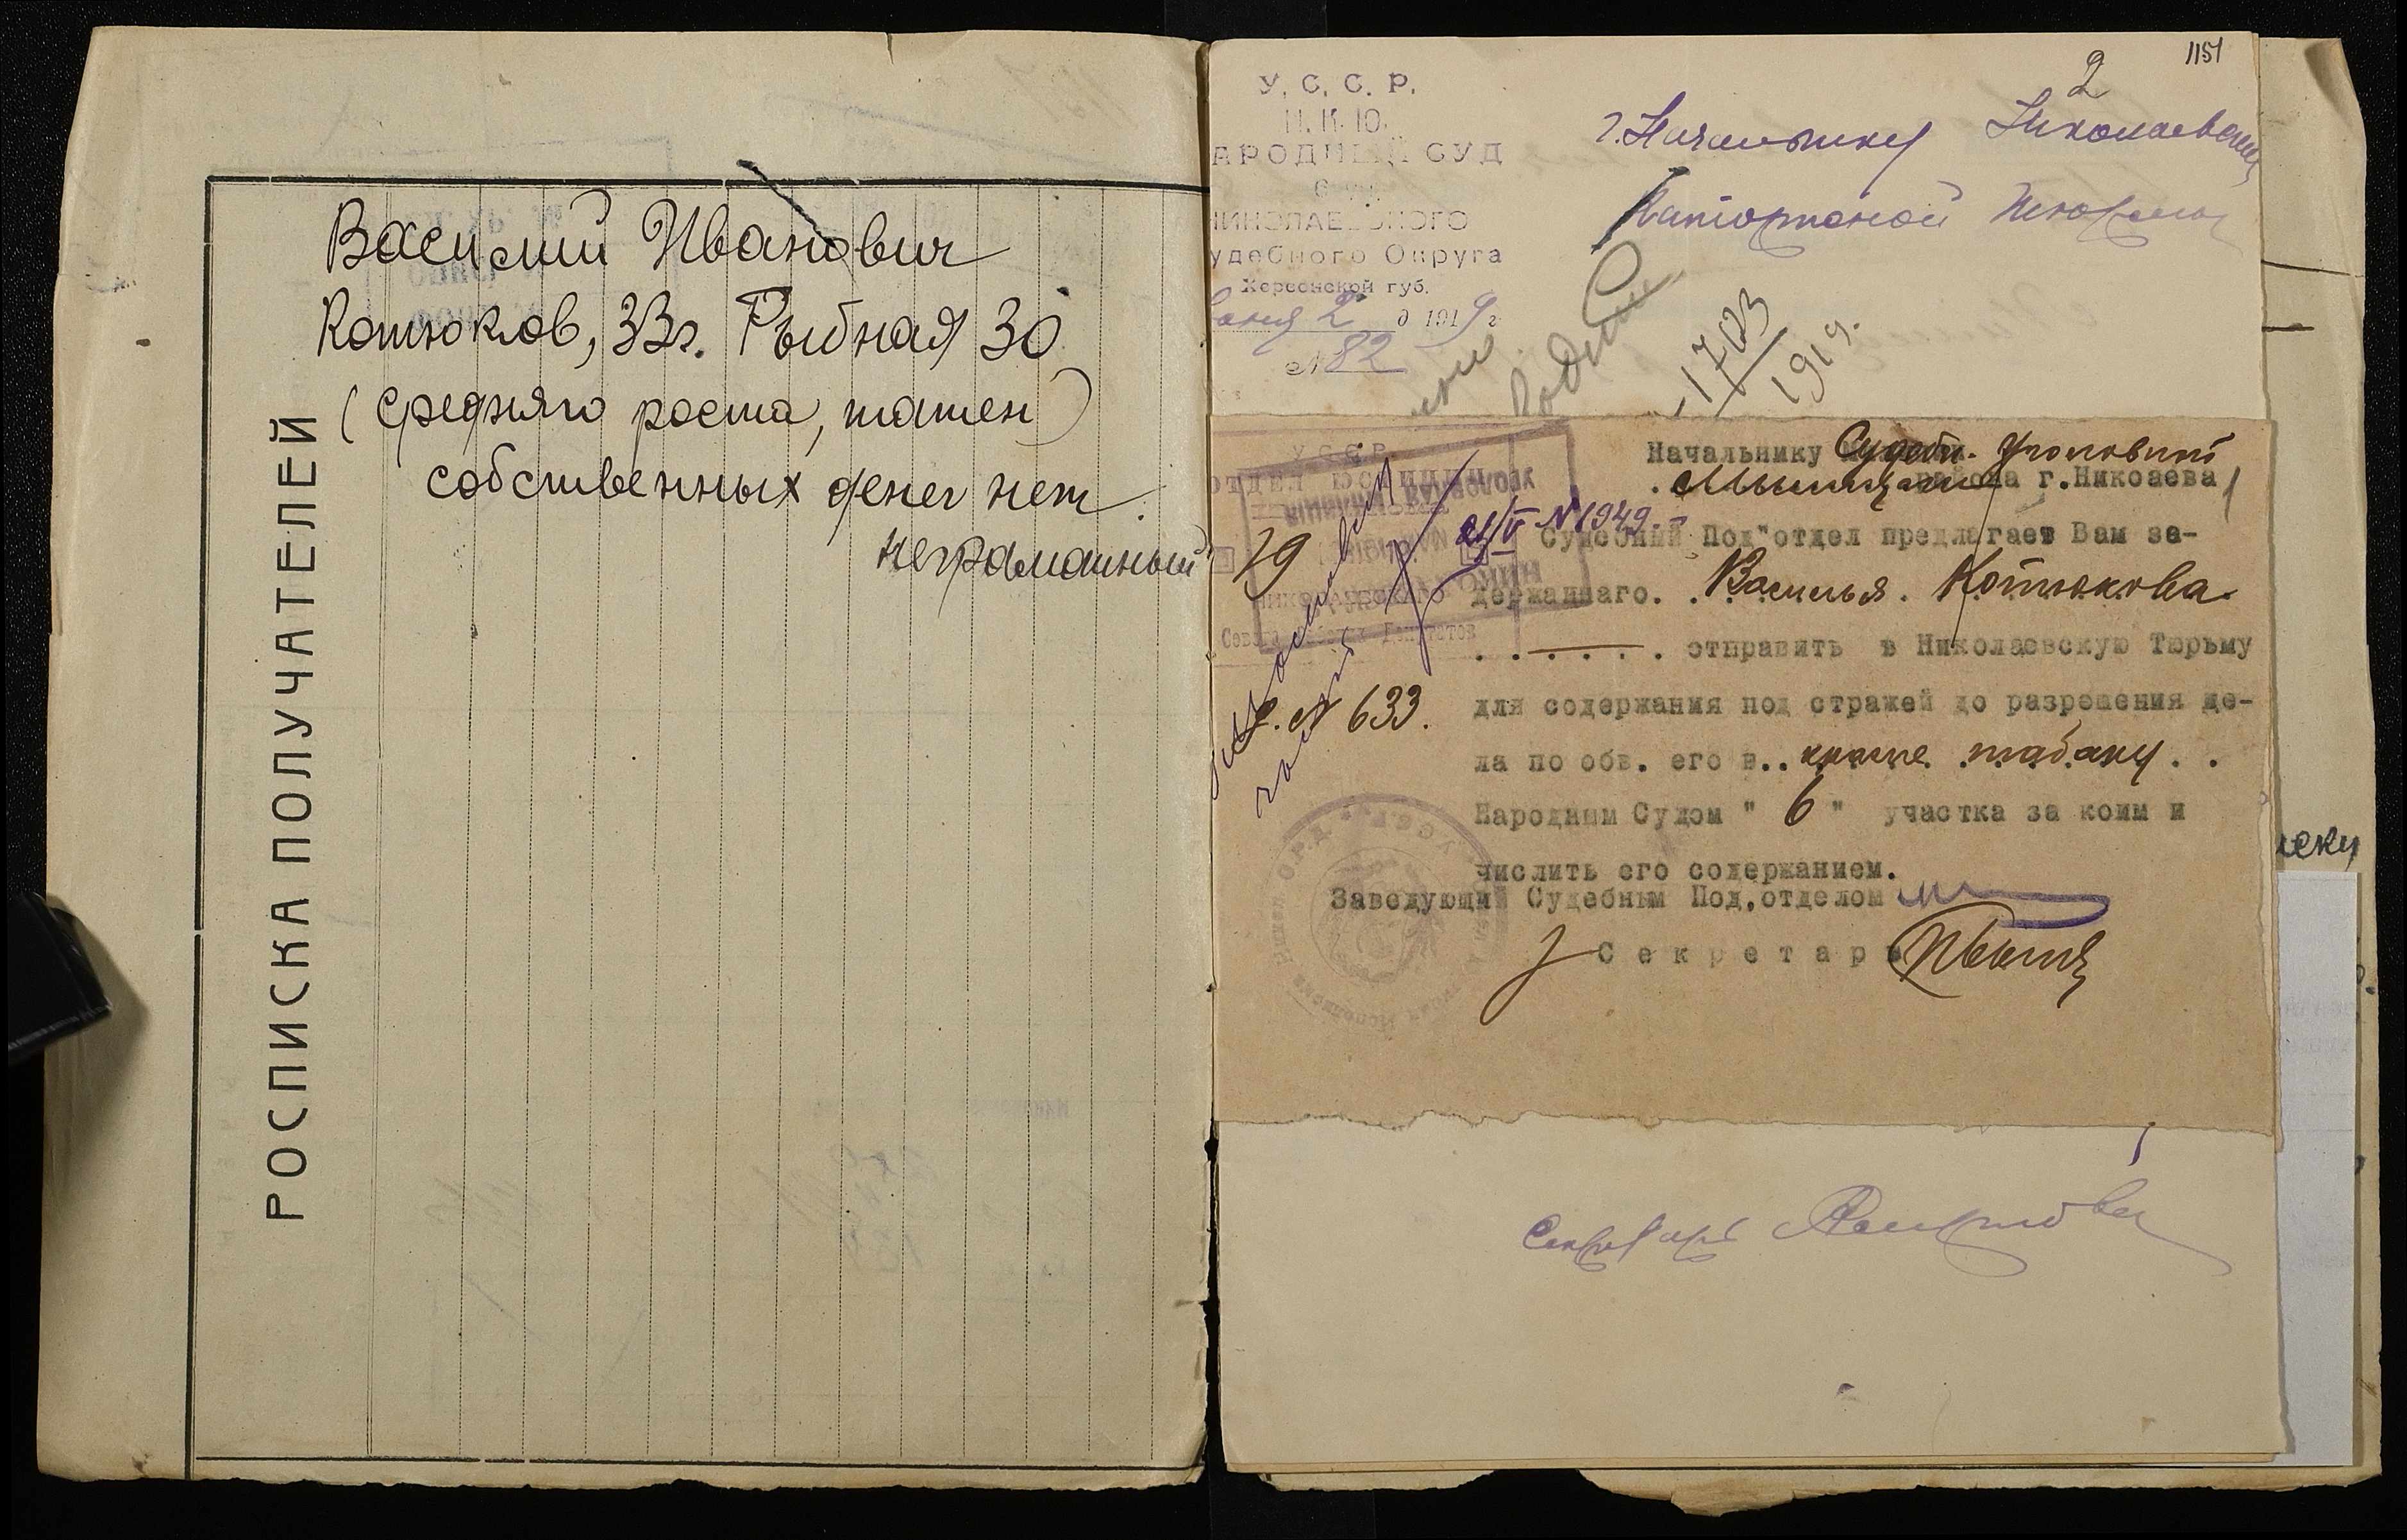 РОСПИСКА ПОЛУЧАТЕЛЕЙ
Василий Иванович
Котюков, 33 г. Рыбная 30
(средняго роста,
собственных денег нет.
неграмотный
1151
2
У. С. С. Р.
Н. К. Ю.
АРОДНЫЙ СУД
НИКОЛАЕВСКОГО
удебного Округа
Херсонской губ.
2 д 1919 г.
№ 82
г. Начальнику Николаевской
Каторжной Тюрьмы
1703
1919.
Начальнику Судебн. Уголовной
Милиции района г.Никоаева
21/V №1949.
Судебный Под"отдел предлагает Вам за-
19
держаннаго. Василья. Котюкова.
. . . . . . отправить в Николаевскую Тюрьму
№ 633.
для содержания под стражей до разрешения де-
ла по обв. его в.. краже табаку. .
Народным Судом " 6 " участка за коим и
числить его содержанием.
Заведующий Судебным Под.отделом
Секретарь
Секретарь